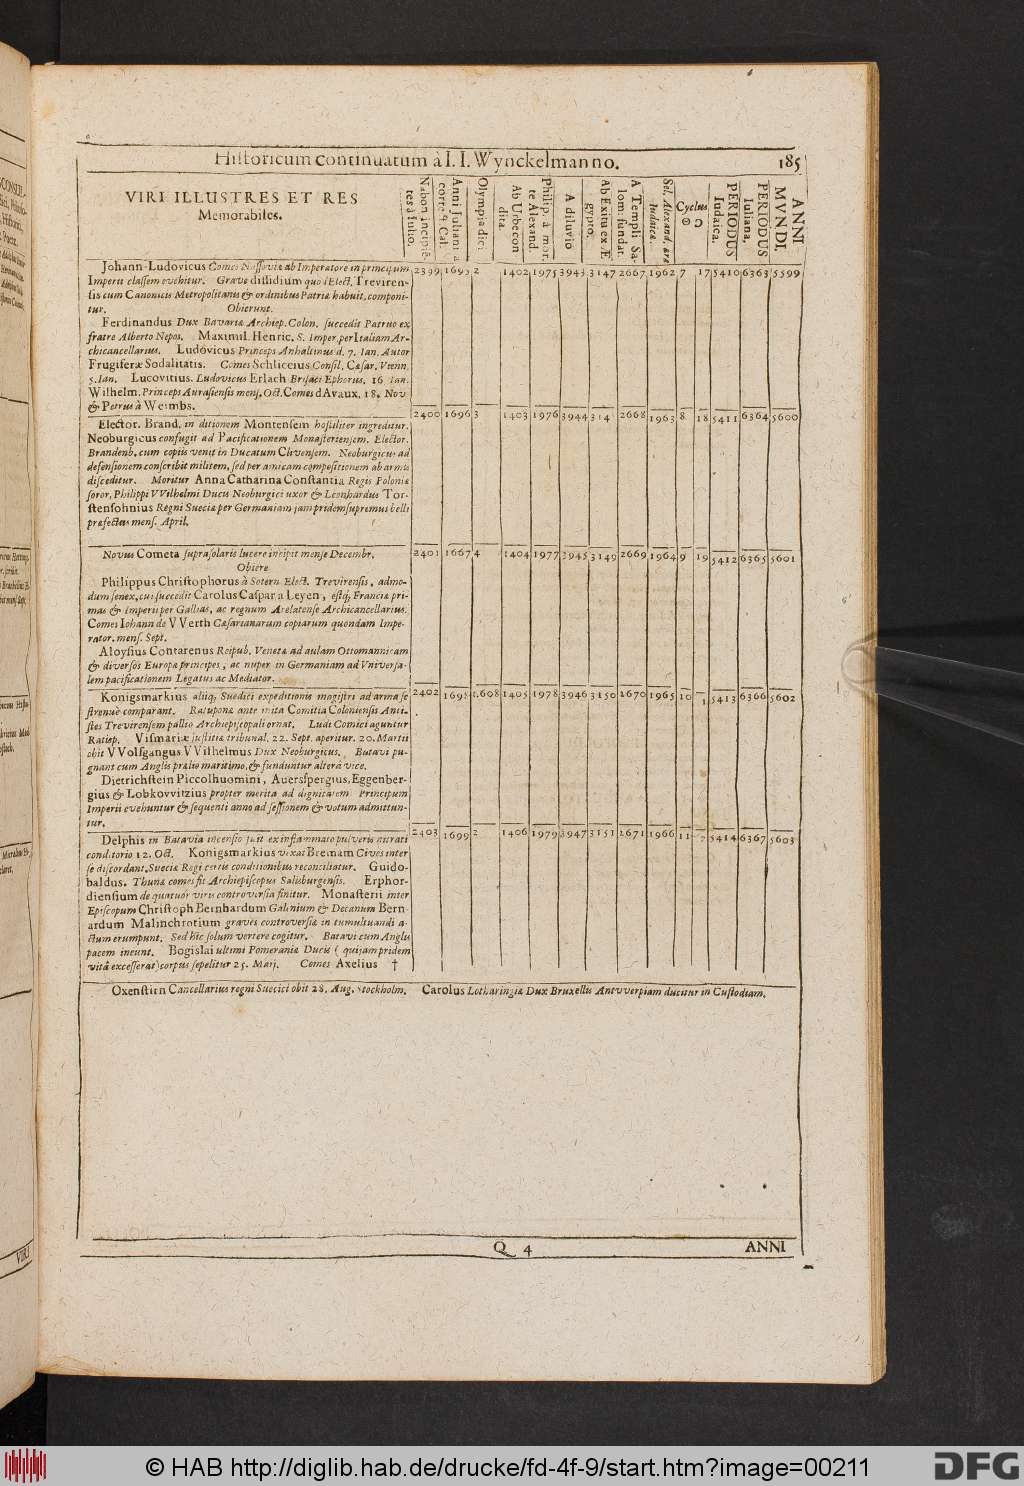 Historicum continuatum à I. I. Wynckelmanno.
185
VIRI ILLUSTRES ET RES
Memorabiles.
Nabon. incipiē-
tes à Iulio.
Anni Juliani à
corr. Cal.
Olympiadici.
Ab Urbe con
dita.
Philip. à mor.
te Alexand.
A diluvio
Ab Exitu ex Æ
gypto.
A Templi Sa-
lom. fundat.
Sel. Alexand. æra
Iudaica.
Cyclus.
☉ ☽
PERIODUS
Iudaica.
PERIODUS
Iuliana.
ANNI
MVNDI.
Johann-Ludovicus Comes Nassoviæ ab Imperatore in principum
Imperii classem evehitur. Grave dissidium quod Elect. Treviren-
sis cum Canonicis Metropolitanis & ordinibus Patriæ habuit, componi-
tur. Obierunt.
Ferdinandus Dux Bavariæ Archiep. Colon. succedit Patruo ex
fratre Alberto Nepos. Maximil. Henric. S. Imper. per Italiam Ar-
chicancellarius. Ludovicus Princeps Anhaltinus d. 7. Ian. Autor
Frugiferæ Sodalitatis. Comes Schliceius Consil. Cæsar. Vienn.
5. Ian. Lucovitius. Ludovicus Erlach Brisaci Ephorus, 16 Ian.
Wilhelm. Princeps Aurasiensis mens. Oct. Comes d Avaux. 18. Nov
& Petrus à Weimbs.
2399 1695 2 1402 1975 3943 3147 2667 1962 7 17 5410 6363 5599
Elector. Brand. in ditionem Montensem hostiliter ingreditur.
Neoburgicus confugit ad Pacificationem Monasteriensem. Elector.
Brandenb. cum copiis venit in Ducatum Clivensem. Neoburgicus ad
defensionem conscribit militem, sed per amicam compositionem ab armis
disceditur. Moritur Anna Catharina Constantia Regis Poloniæ
soror, Philippi VVilhelmi Ducis Neoburgici uxor & Leonhardus Tor-
stensohnius Regni Sueciæ per Germaniam jam pridem supremus belli
præfectus mens. April.
2400 1696 3 1403 1976 3944 314 2668 1963 8 18 5411 6364 5600
Novus Cometa suprasolaris lucere incipit mense Decembr.
Obiere
Philippus Christophorus à Sotern Elect. Trevirensis, admo-
dum senex, cui succedit Carolus Caspar a Leyen, estq; Franciæ pri-
mas & Imperii per Gallias, ac regnum Arelatense Archicancellarius.
Comes Iohann de VVerth Cæsarianarum copiarum quondam Impe-
rator. mens. Sept.
Aloysius Contarenus Reipub. Venetæ ad aulam Ottomannicam
& diversos Europæ principes, ac nuper in Germaniam ad Vniversa-
lem pacificationem Legatus ac Mediator.
2401 1667 4 1404 1977 3945 3149 2669 1964 9 19 5412 6365 5601
Konigsmarkius aliiq; Suedici expeditionis magistri ad arma se
strenuè comparant. Ratuponæ ante ista Comitia Coloniensis Anti-
stes Trevirensem pallio Archiepiscopali ornat. Ludi Comici aguntur
Ratisp. Vismariæ justitiæ tribunal. 22. Sept. aperitur. 20. Martii
obit VVolfgangus VVilhelmus Dux Neoburgicus. Batavi pu-
gnant cum Anglis prælio maritimo, & funduntur alterâ vice.
Dietrichstein Piccolhuomini, Aversspergius, Eggenber-
gius & Lobkovvitzius propter merita ad dignitatem Principum
Imperii evehuntur & sequenti anno ad sessionem & votum admittun-
tur.
2402 1698 1.608 1405 1978 3946 3150 1670 1965 10 1 5413 6366 5602
Delphis in Batavia incensio fuit ex inflammato pulveris nitrati
conditorio 12. Oct. Konigsmarkius vexat Bremam Cives inter
se discordant. Sueciæ Regi certis conditionibus reconciliatur. Guido-
baldus. Thunæ comes fit Archiepiscopus Salisburgensis. Erphor-
diensium de quatuor viris controversia finitur. Monasterii inter
Episcopum Christoph Bernhardum Galinium & Decanum Bern-
ardum Malinchrotium graves controversiæ in tumultuandi a-
ctum erumpunt. Sed hic solum vertere cogitur. Batavi cum Anglis
pacem ineunt. Bogislai ultimi Pomeraniæ Ducis ( qui jam pridem
vitâ excesserat) corpus sepelitur 25. Maij. Comes Axelius †
2403 1699 2 1406 1979 3947 3151 2671 1966 11 2 5414 6367 5603
Oxenstirn Cancellarius regni Suecici obit 28. Aug. Stockholm. Carolus Lotharingiæ Dux Bruxellis Antvverpiam ducitur in Custodiam.
Q 4
ANNI
VIRI
© HAB http://diglib.hab.de/drucke/fd-4f-9/start.htm?image=00211
DFG